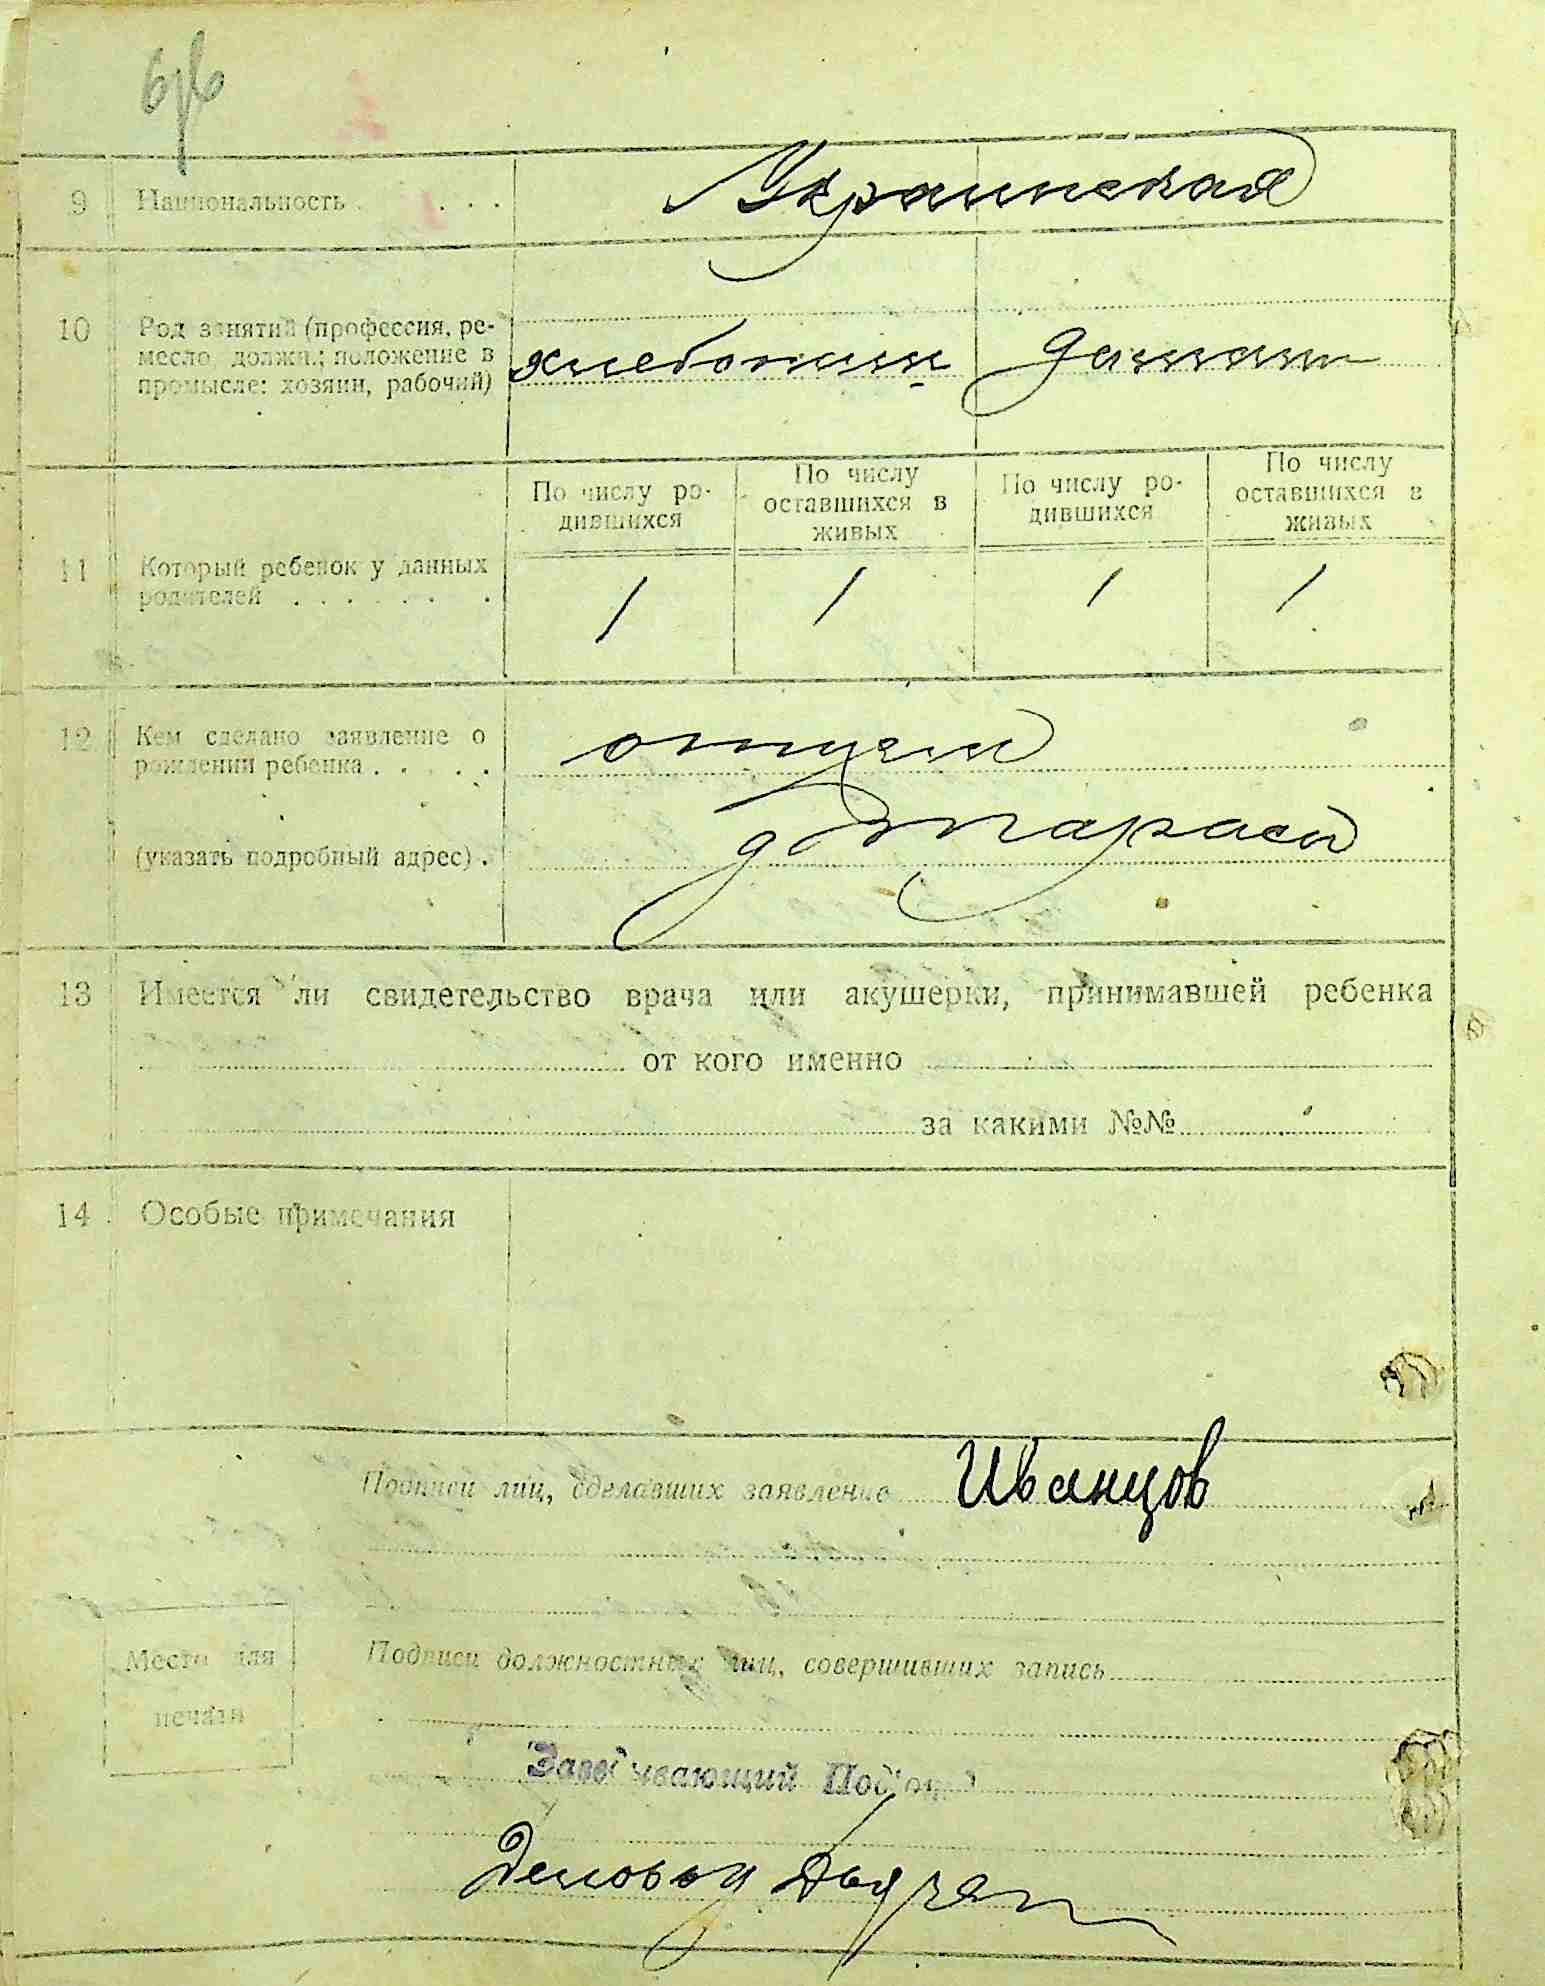 9 Национальность . . . . Украинская
10 Род занятий (профессия, ре-
месло, должн.; положение в
промысле: хозяин, рабочий)
хлебопашец домаш
По числу ро-
дившихся
По числу
оставшихся в
живых
По числу ро-
дившихся
По числу
оставшихся в
живых
11 Который ребенок у данных
родителей . . . . . . .
1 1 1 1
12 Кем сделано заявление о
рождении ребенка . . . . .
отцем
(указать подробный адрес) .
д Тарасы
13 Имеется ли свидетельство врача или акушерки, принимавшей ребенка
от кого именно
за какими №№
14 Особые примечания
Подписи лиц, сделавших заявление Иванцов
Место для
печати
Подписи должностных лиц, совершивших запись
Заведывающий
Деловод